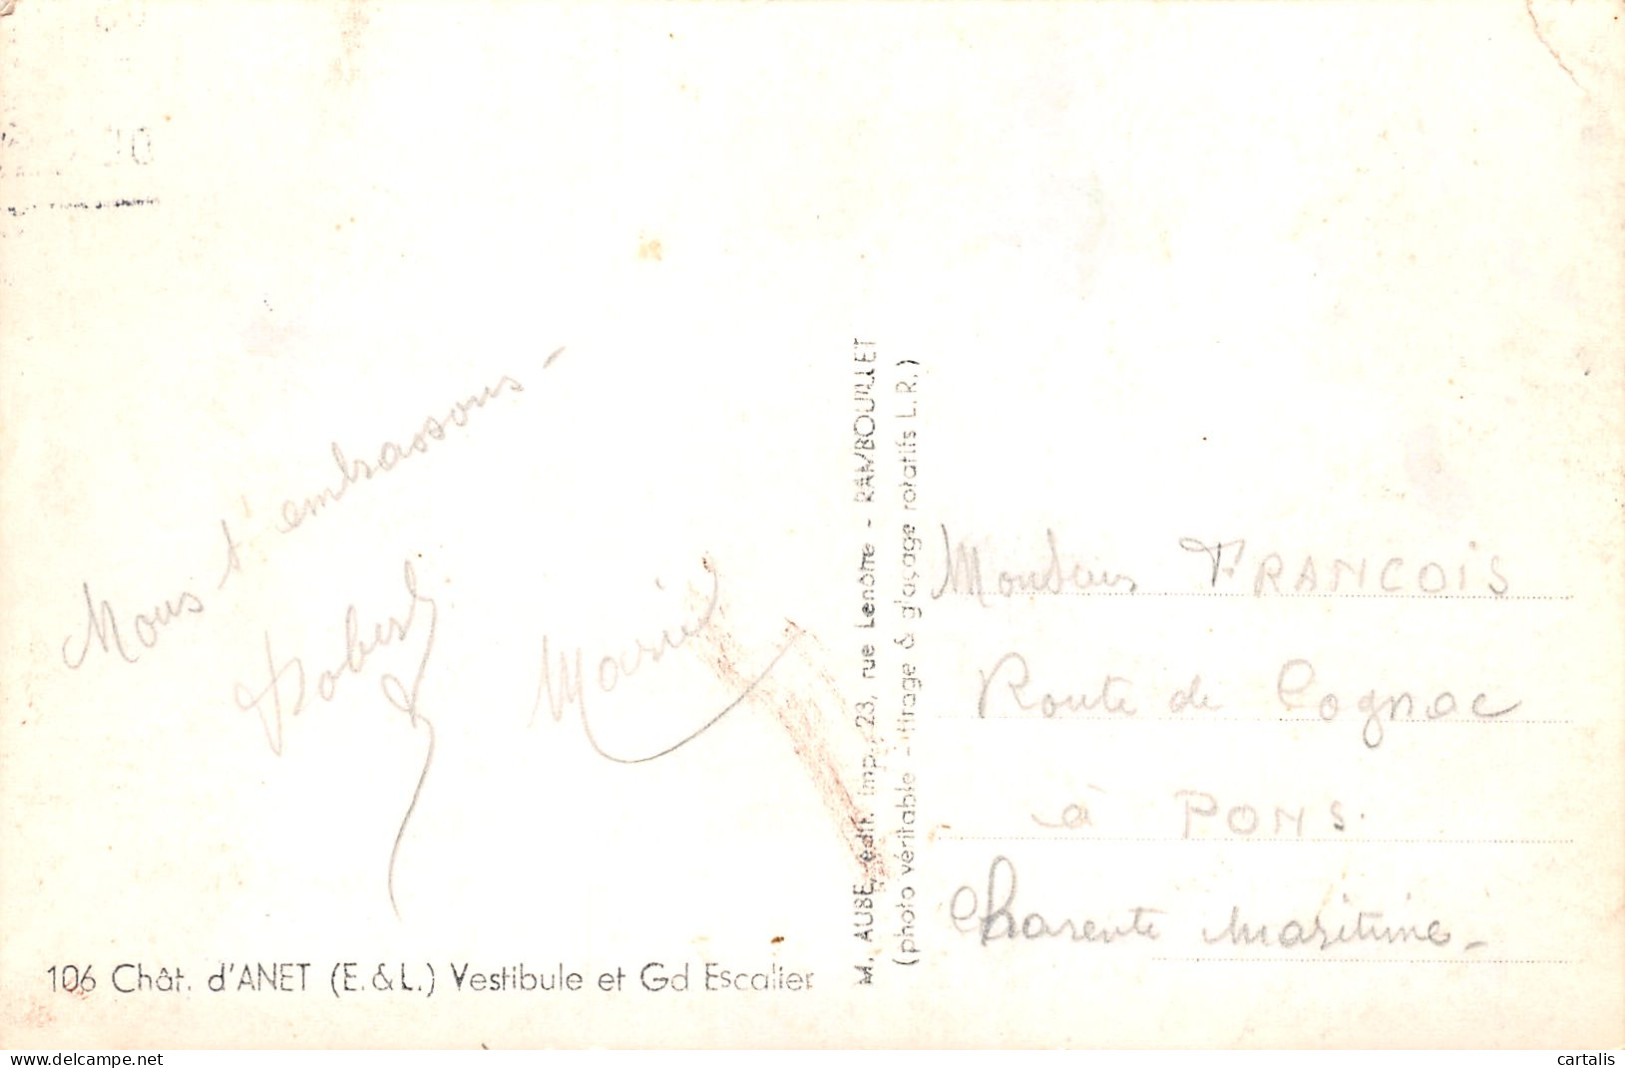 Nous t'embrassons -
Robert
Marie
106 Chât. d'ANET (E.&L.) Vestibule et Gd Escalier
M. AUBE, édit. imp. 23, rue Lenôtre - RAMBOUILLET
(photo véritable - tirage & glaçage rotatifs L.R.)
Monsieur FRANCOIS
Route de Cognac
à PONS.
Charente Maritime -
cartalis